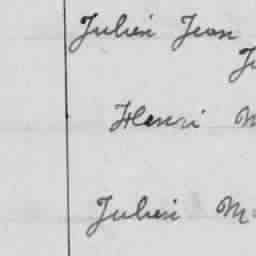 Julien Jean
Ju
Henri M
Julien M